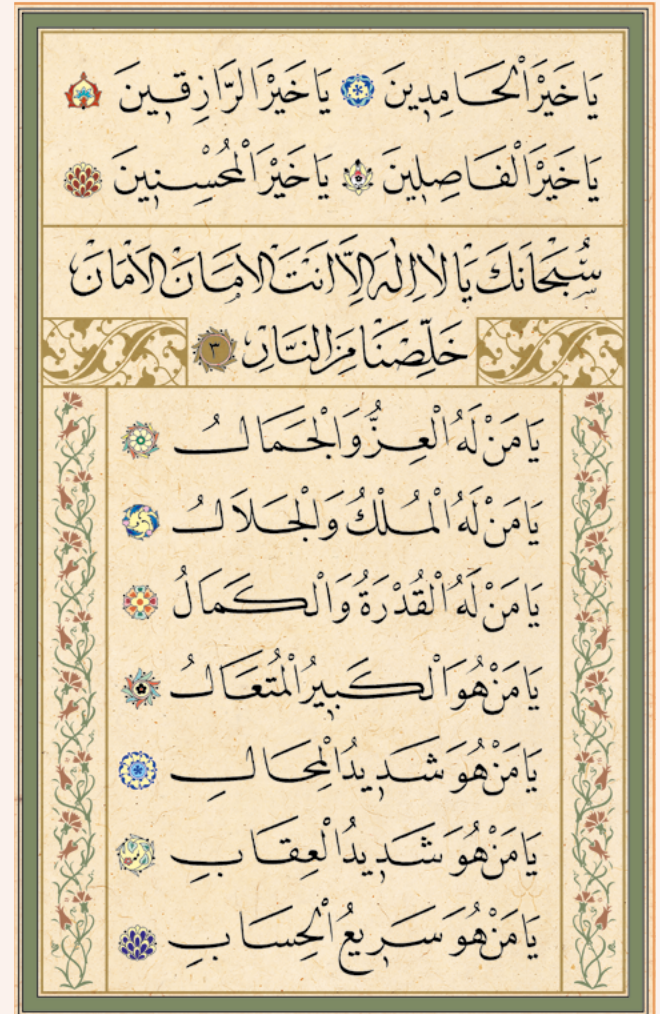 يَا خَيْرَ الْحَامِدِينَ يَا خَيْرَ الرَّازِقِينَ
يَا خَيْرَ الْفَاصِلِينَ يَا خَيْرَ الْمُحْسِنِينَ
سُبْحَانَكَ يَا لَا اِلٰهَ اِلَّا اَنْتَ الْاَمَانَ الْاَمَانَ
خَلِّصْنَا مِنَ النَّارِ ٣
يَا مَنْ لَهُ الْعِزُّ وَالْجَمَالُ
يَا مَنْ لَهُ الْمُلْكُ وَالْجَلَالُ
يَا مَنْ لَهُ الْقُدْرَةُ وَالْكَمَالُ
يَا مَنْ هُوَ الْكَبِيرُ الْمُتَعَالُ
يَا مَنْ هُوَ شَدِيدُ الْمِحَالِ
يَا مَنْ هُوَ شَدِيدُ الْعِقَابِ
يَا مَنْ هُوَ سَرِيعُ الْحِسَابِ